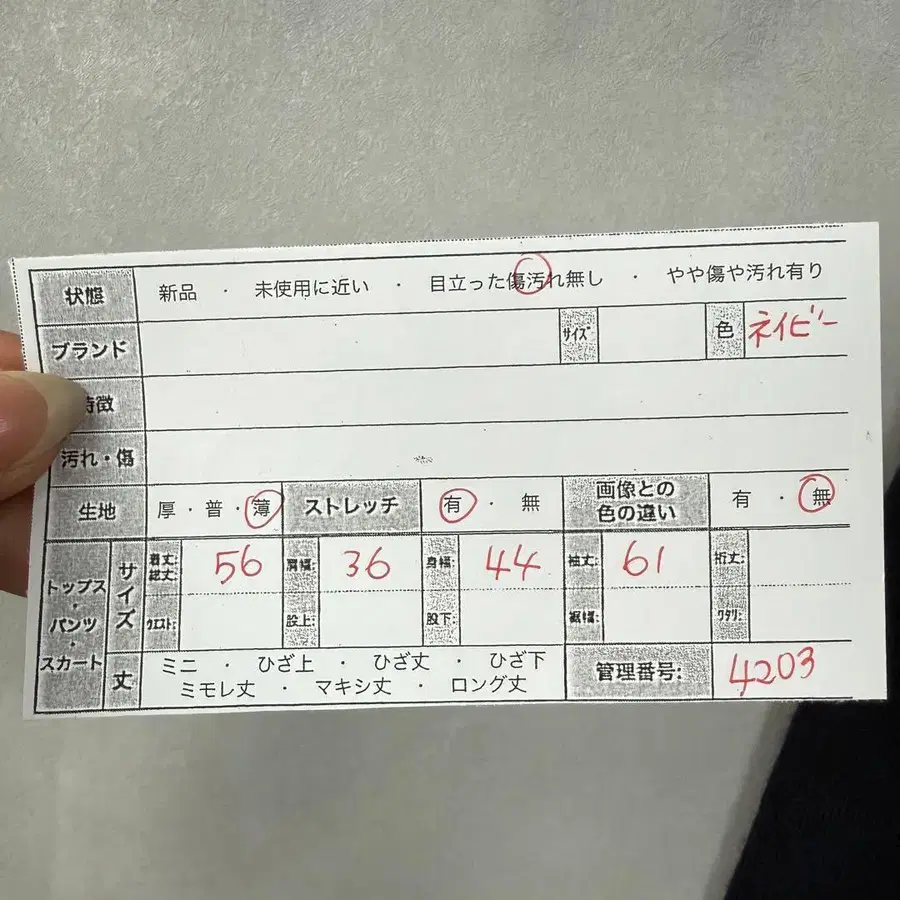 状態 新品 ・ 未使用に近い ・ 目立った傷汚れ無し ・ やや傷や汚れ有り
ブランド サイズ 色 ネイビー
特徴
汚れ・傷
生地 厚・普・薄 ストレッチ 有・無 画像との色の違い 有・無
トップス・パンツ・スカート サイズ 着丈:総丈: 56 肩幅: 36 身幅: 44 袖丈: 61 裄丈:
ウエスト: 股上: 股下: 裾幅: ワタリ:
丈 ミニ ・ ひざ上 ・ ひざ丈 ・ ひざ下
ミモレ丈 ・ マキシ丈 ・ ロング丈 管理番号: 4203